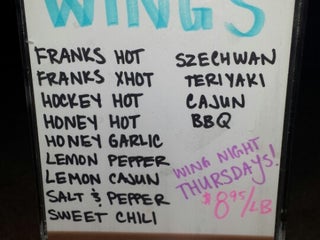 WINGS
FRANKS HOT
FRANKS XHOT
HOCKEY HOT
HONEY HOT
HONEY GARLIC
LEMON PEPPER
LEMON CAJUN
SALT & PEPPER
SWEET CHILI
SZECHWAN
TERIYAKI
CAJUN
BBQ
WING NIGHT
THURSDAYS!
$8.95/LB